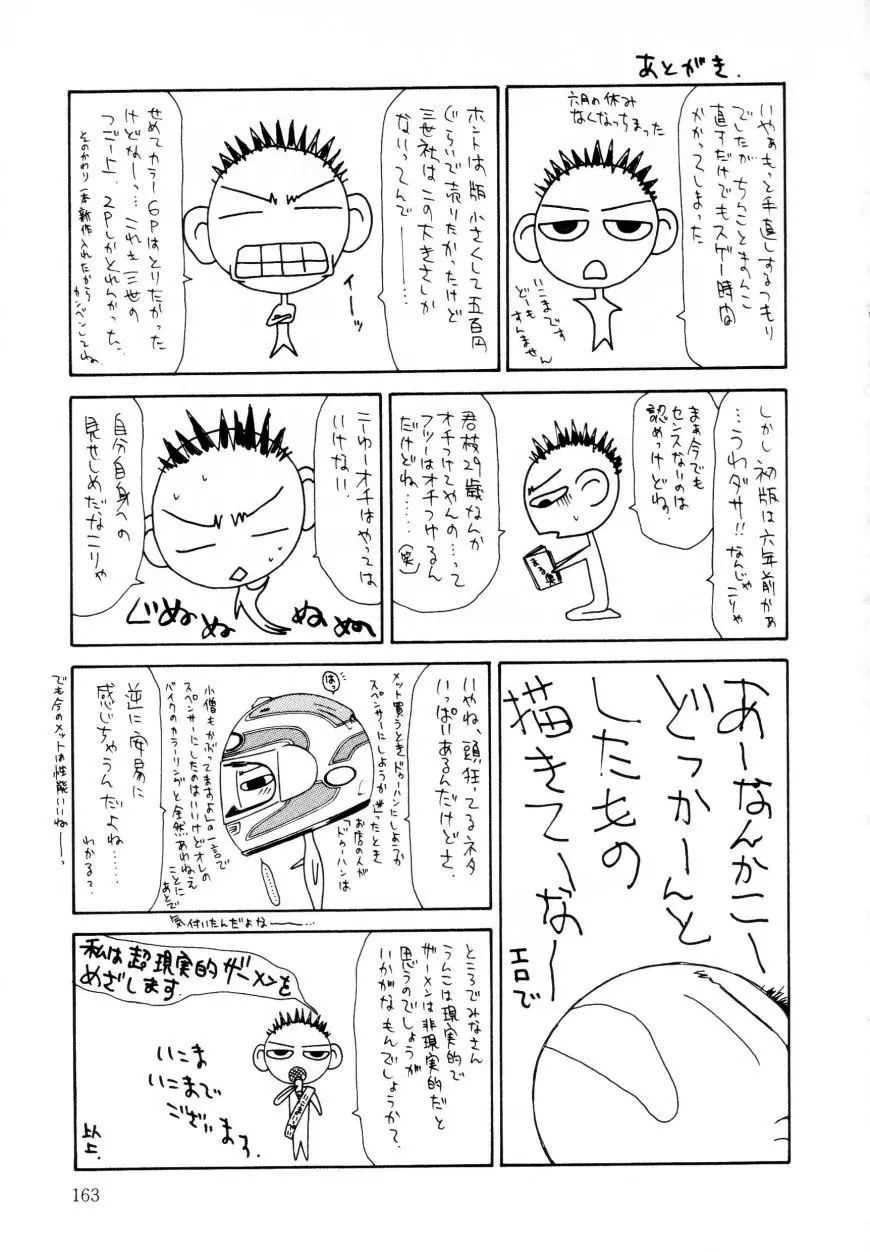 あとがき.
いやぁもっと手直しするつもり
でしたがちんことまんこ
直すだけでもスゲー時間
かかってしまった
六月の休み
なくなっちまった
いこまです
どーも
すんません
ホントは版小さくして五百円
ぐらいで売りたかったけど
三世社はこの大きさしか
ないってんで―――……
イーッ
せめてカラー6Pはとりたかった
けどなーっ…これも三世の
つごー上、2Pしかとれんかった。
そのかわり一本新作入れたから
カンベンしてね
しかし初版は六年前かぁ
…うわダサ!!なんじゃ
こりゃ
まぁ今でも
センスないのは
認めっけどね。
君枝29歳なんか
オチつけてやんの…って
フツーはオチつけるん
だけどね……(笑)
こーゆーオチはやっては
いけない
自分自身への
見せしめだなこりゃ
ぐぬぬ ぬぬぬ
あーなんかこー
どっかーんと
したもの
描きてーなー
エロで
いやね、頭狂ってるネタ
いっぱいあるんだけどさ、
はっ
メット買うときドゥーハンにしようか
スペンサーにしようか迷ったとき
お店の人が
「ドゥーハンは
小僧もかぶってますよ」の一言で
スペンサーにしたのはいいけどオレの
バイクのカラーリングと全然あわねえ
ことに
あとで
気付いたんだよな―――…
逆に安易に
感じちゃうんだよね……
わかる?
でも今のメットは性能いいね――っ
ところでみなさん
うんこは現実的で
ザーメンは非現実的だと
思うのでしょうが
いかがなもんでしょうか?
私は超現実的ザーメンを
めざします
いこま
いこまで
ございます.
以上.
163